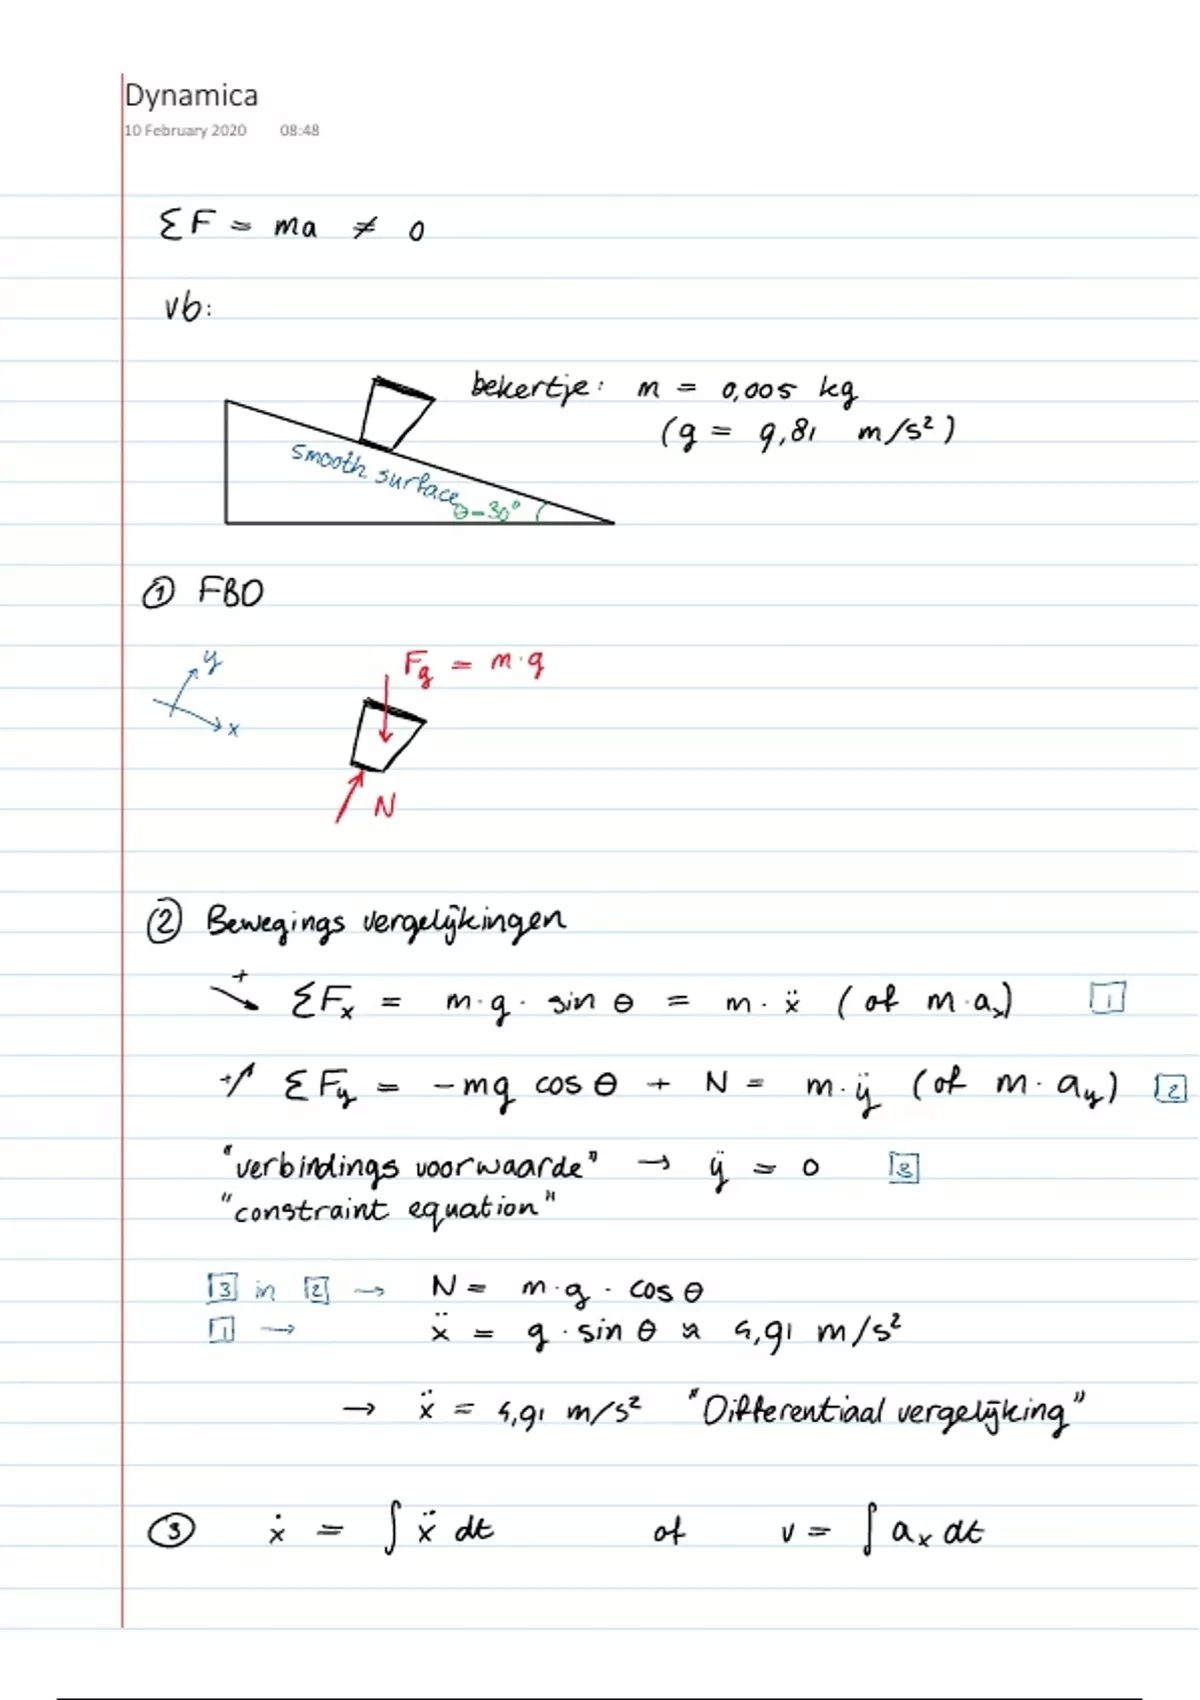 Dynamica
10 February 2020 08:48
ΣF = ma ≠ 0
vb:
bekertje: m = 0,005 kg
(g = 9,81 m/s²)
smooth surface
θ=30°
① FBD
y
x
Fg = m·g
N
② Bewegings vergelijkingen
+ ΣFx = m·g·sin θ = m·ẍ (of m·ax) [1]
+ ΣFy = -mg cos θ + N = m·ÿ (of m·ay) [2]
"verbindings voorwaarde" → ÿ = 0 [3]
"constraint equation"
[3] in [2] → N = m·g·cos θ
[1] → ẍ = g·sin θ ≈ 4,91 m/s²
→ ẍ = 4,91 m/s² "Differentiaal vergelijking"
③ ẋ = ∫ ẍ dt of v = ∫ ax dt